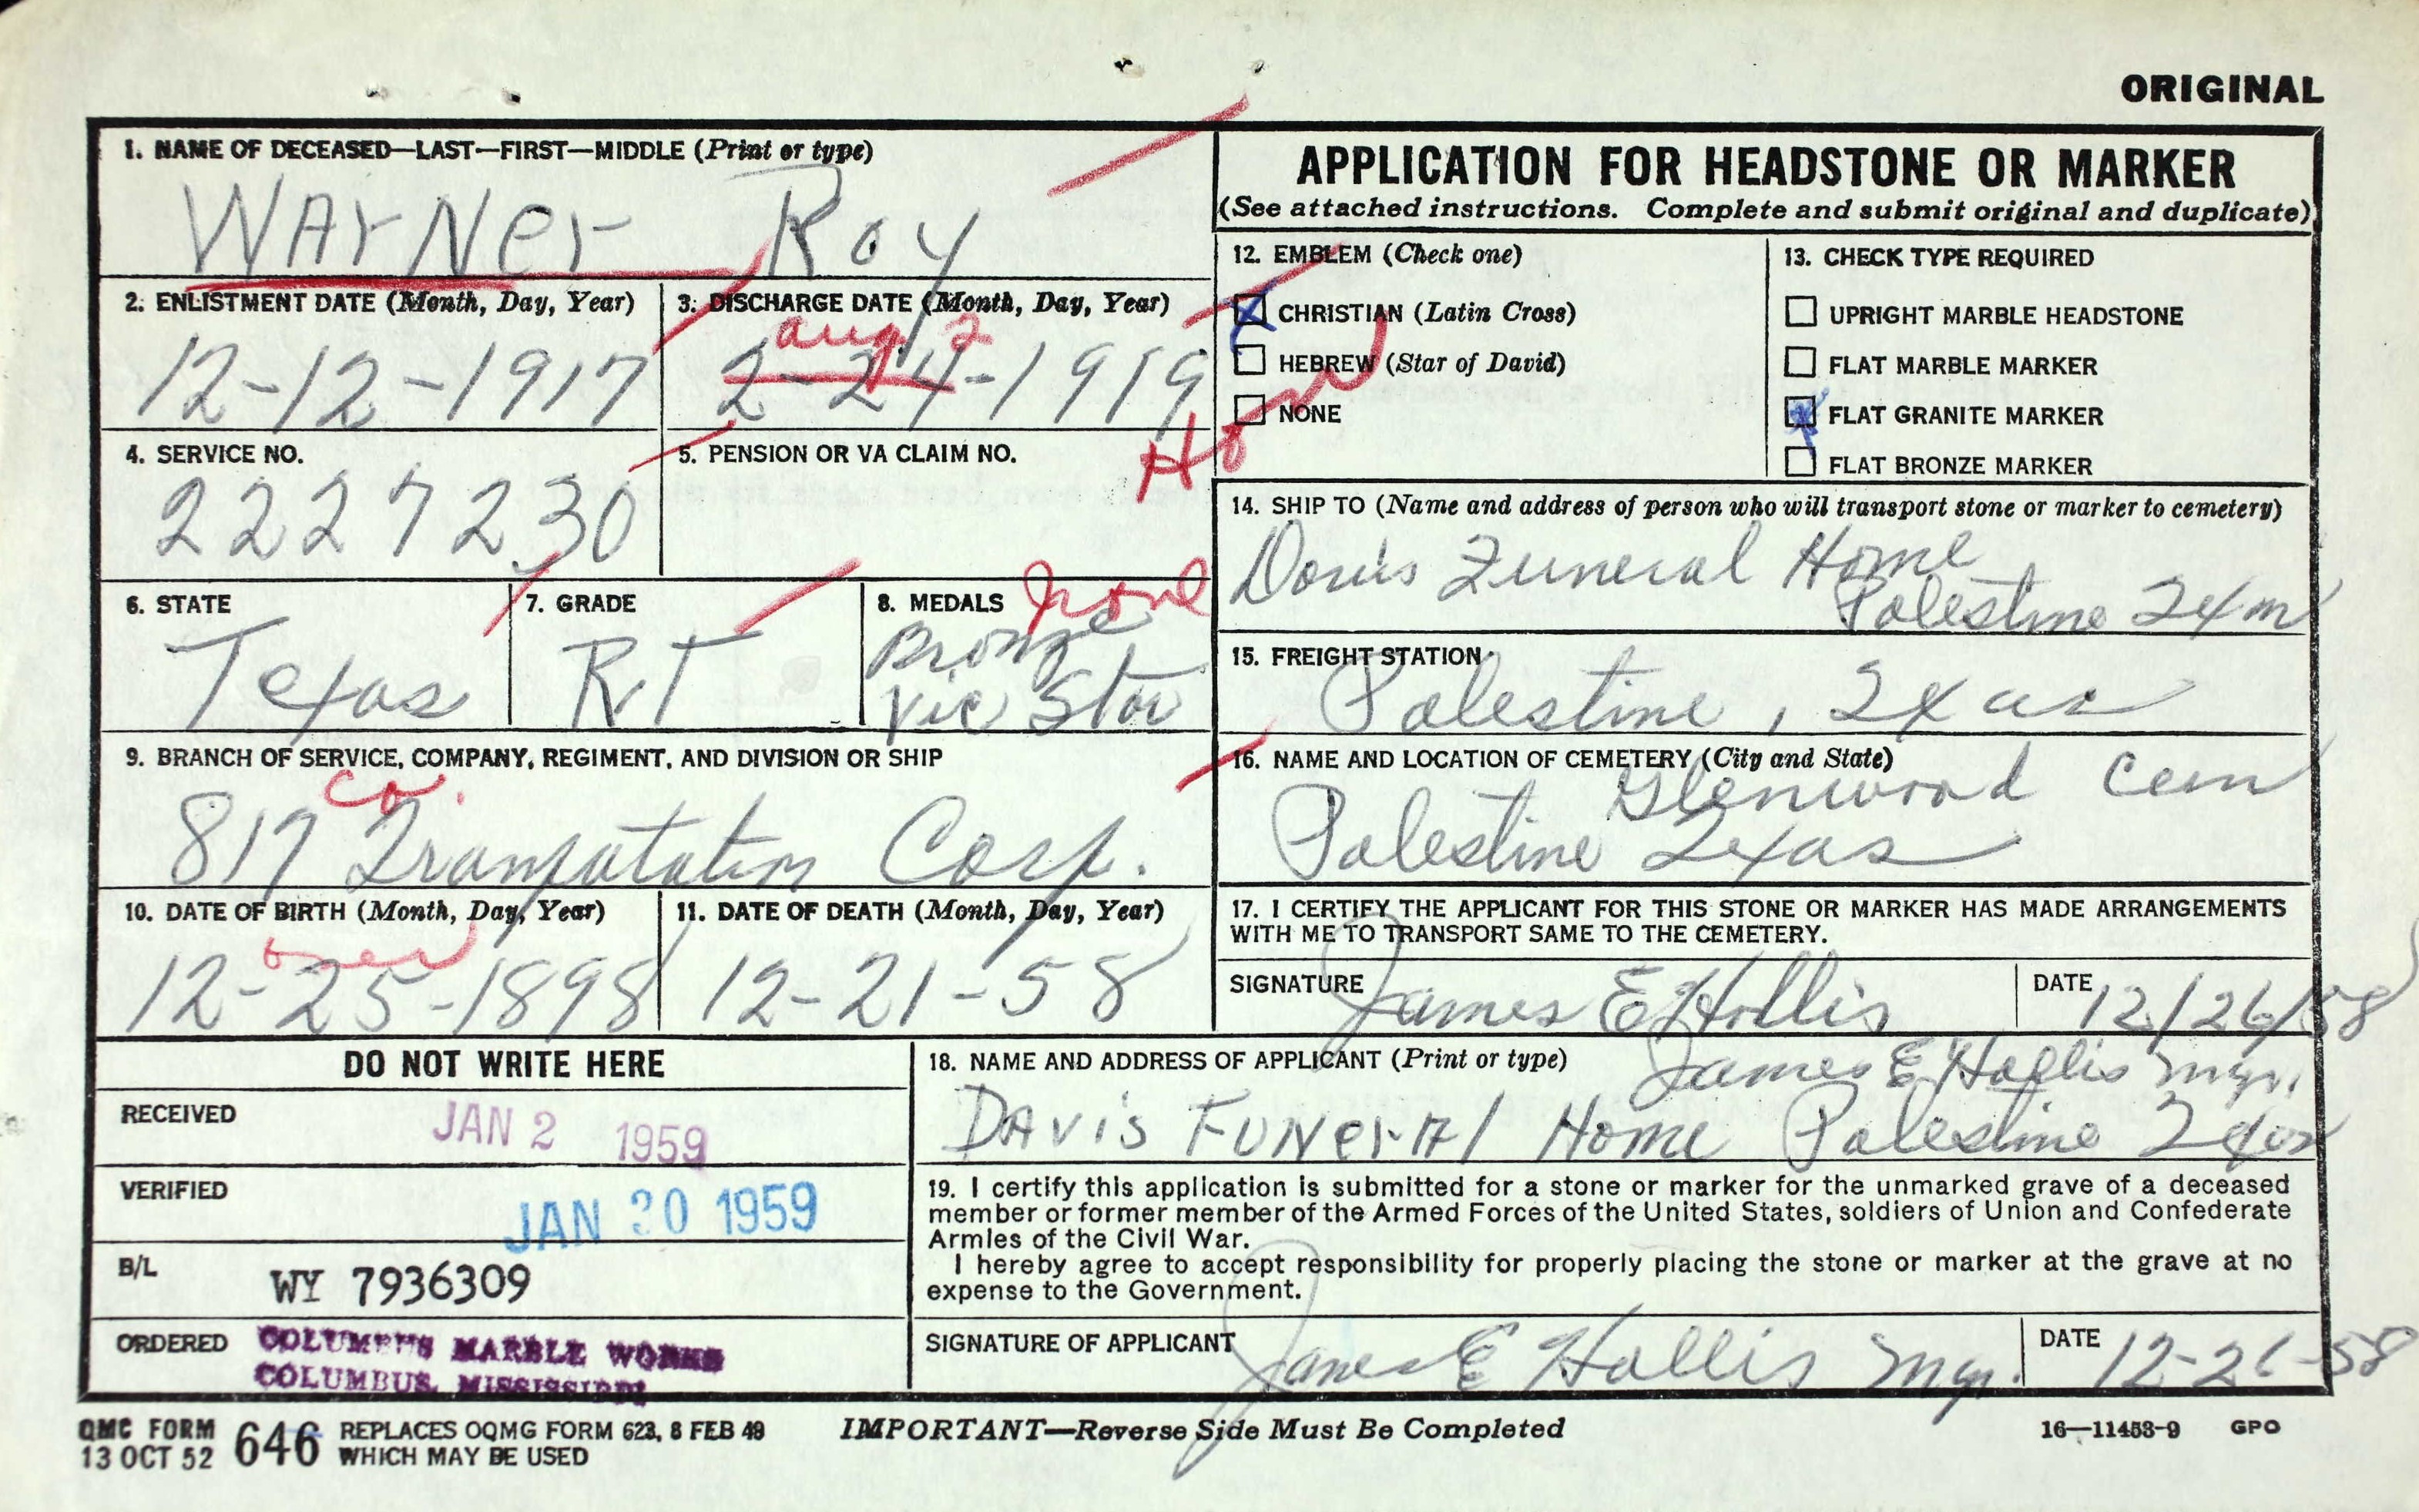 ORIGINAL
1. NAME OF DECEASED—LAST—FIRST—MIDDLE (Print or type)
WArNer Roy
APPLICATION FOR HEADSTONE OR MARKER
(See attached instructions. Complete and submit original and duplicate)
2. ENLISTMENT DATE (Month, Day, Year)
12-12-1917
3. DISCHARGE DATE (Month, Day, Year)
aug 2
2-24-1919
Hon
4. SERVICE NO.
2227230
5. PENSION OR VA CLAIM NO.
6. STATE
Texas
7. GRADE
8. MEDALS
none
Bronze
Vic Star
9. BRANCH OF SERVICE, COMPANY, REGIMENT, AND DIVISION OR SHIP
Co.
817 Corp.
10. DATE OF BIRTH (Month, Day, Year)
12-25-1898
11. DATE OF DEATH (Month, Day, Year)
12-21-58
12. EMBLEM (Check one)
CHRISTIAN (Latin Cross)
HEBREW (Star of David)
NONE
13. CHECK TYPE REQUIRED
UPRIGHT MARBLE HEADSTONE
FLAT MARBLE MARKER
FLAT GRANITE MARKER
FLAT BRONZE MARKER
14. SHIP TO (Name and address of person who will transport stone or marker to cemetery)
Davis Funeral Home
Palestine
15. FREIGHT STATION
Palestine, Texas
16. NAME AND LOCATION OF CEMETERY (City and State)
Glenwood Cem
Palestine Texas
17. I CERTIFY THE APPLICANT FOR THIS STONE OR MARKER HAS MADE ARRANGEMENTS
WITH ME TO TRANSPORT SAME TO THE CEMETERY.
SIGNATURE James E Hollis DATE 12/26/58
DO NOT WRITE HERE
RECEIVED JAN 2 1959
VERIFIED JAN 30 1959
B/L WY 7936309
ORDERED COLUMBUS MARBLE WORKS
COLUMBUS, MISSISSIPPI
18. NAME AND ADDRESS OF APPLICANT (Print or type)
James E Hollis Mgr.
DAvis FUNerAl Home Palestine Texas
19. I certify this application is submitted for a stone or marker for the unmarked grave of a deceased
member or former member of the Armed Forces of the United States, soldiers of Union and Confederate
Armies of the Civil War.
I hereby agree to accept responsibility for properly placing the stone or marker at the grave at no
expense to the Government.
SIGNATURE OF APPLICANT James E Hollis Mgr. DATE 12-26-58
QMC FORM
13 OCT 52 646 REPLACES OQMG FORM 623, 8 FEB 49
WHICH MAY BE USED
IMPORTANT—Reverse Side Must Be Completed
16—11453-9 GPO